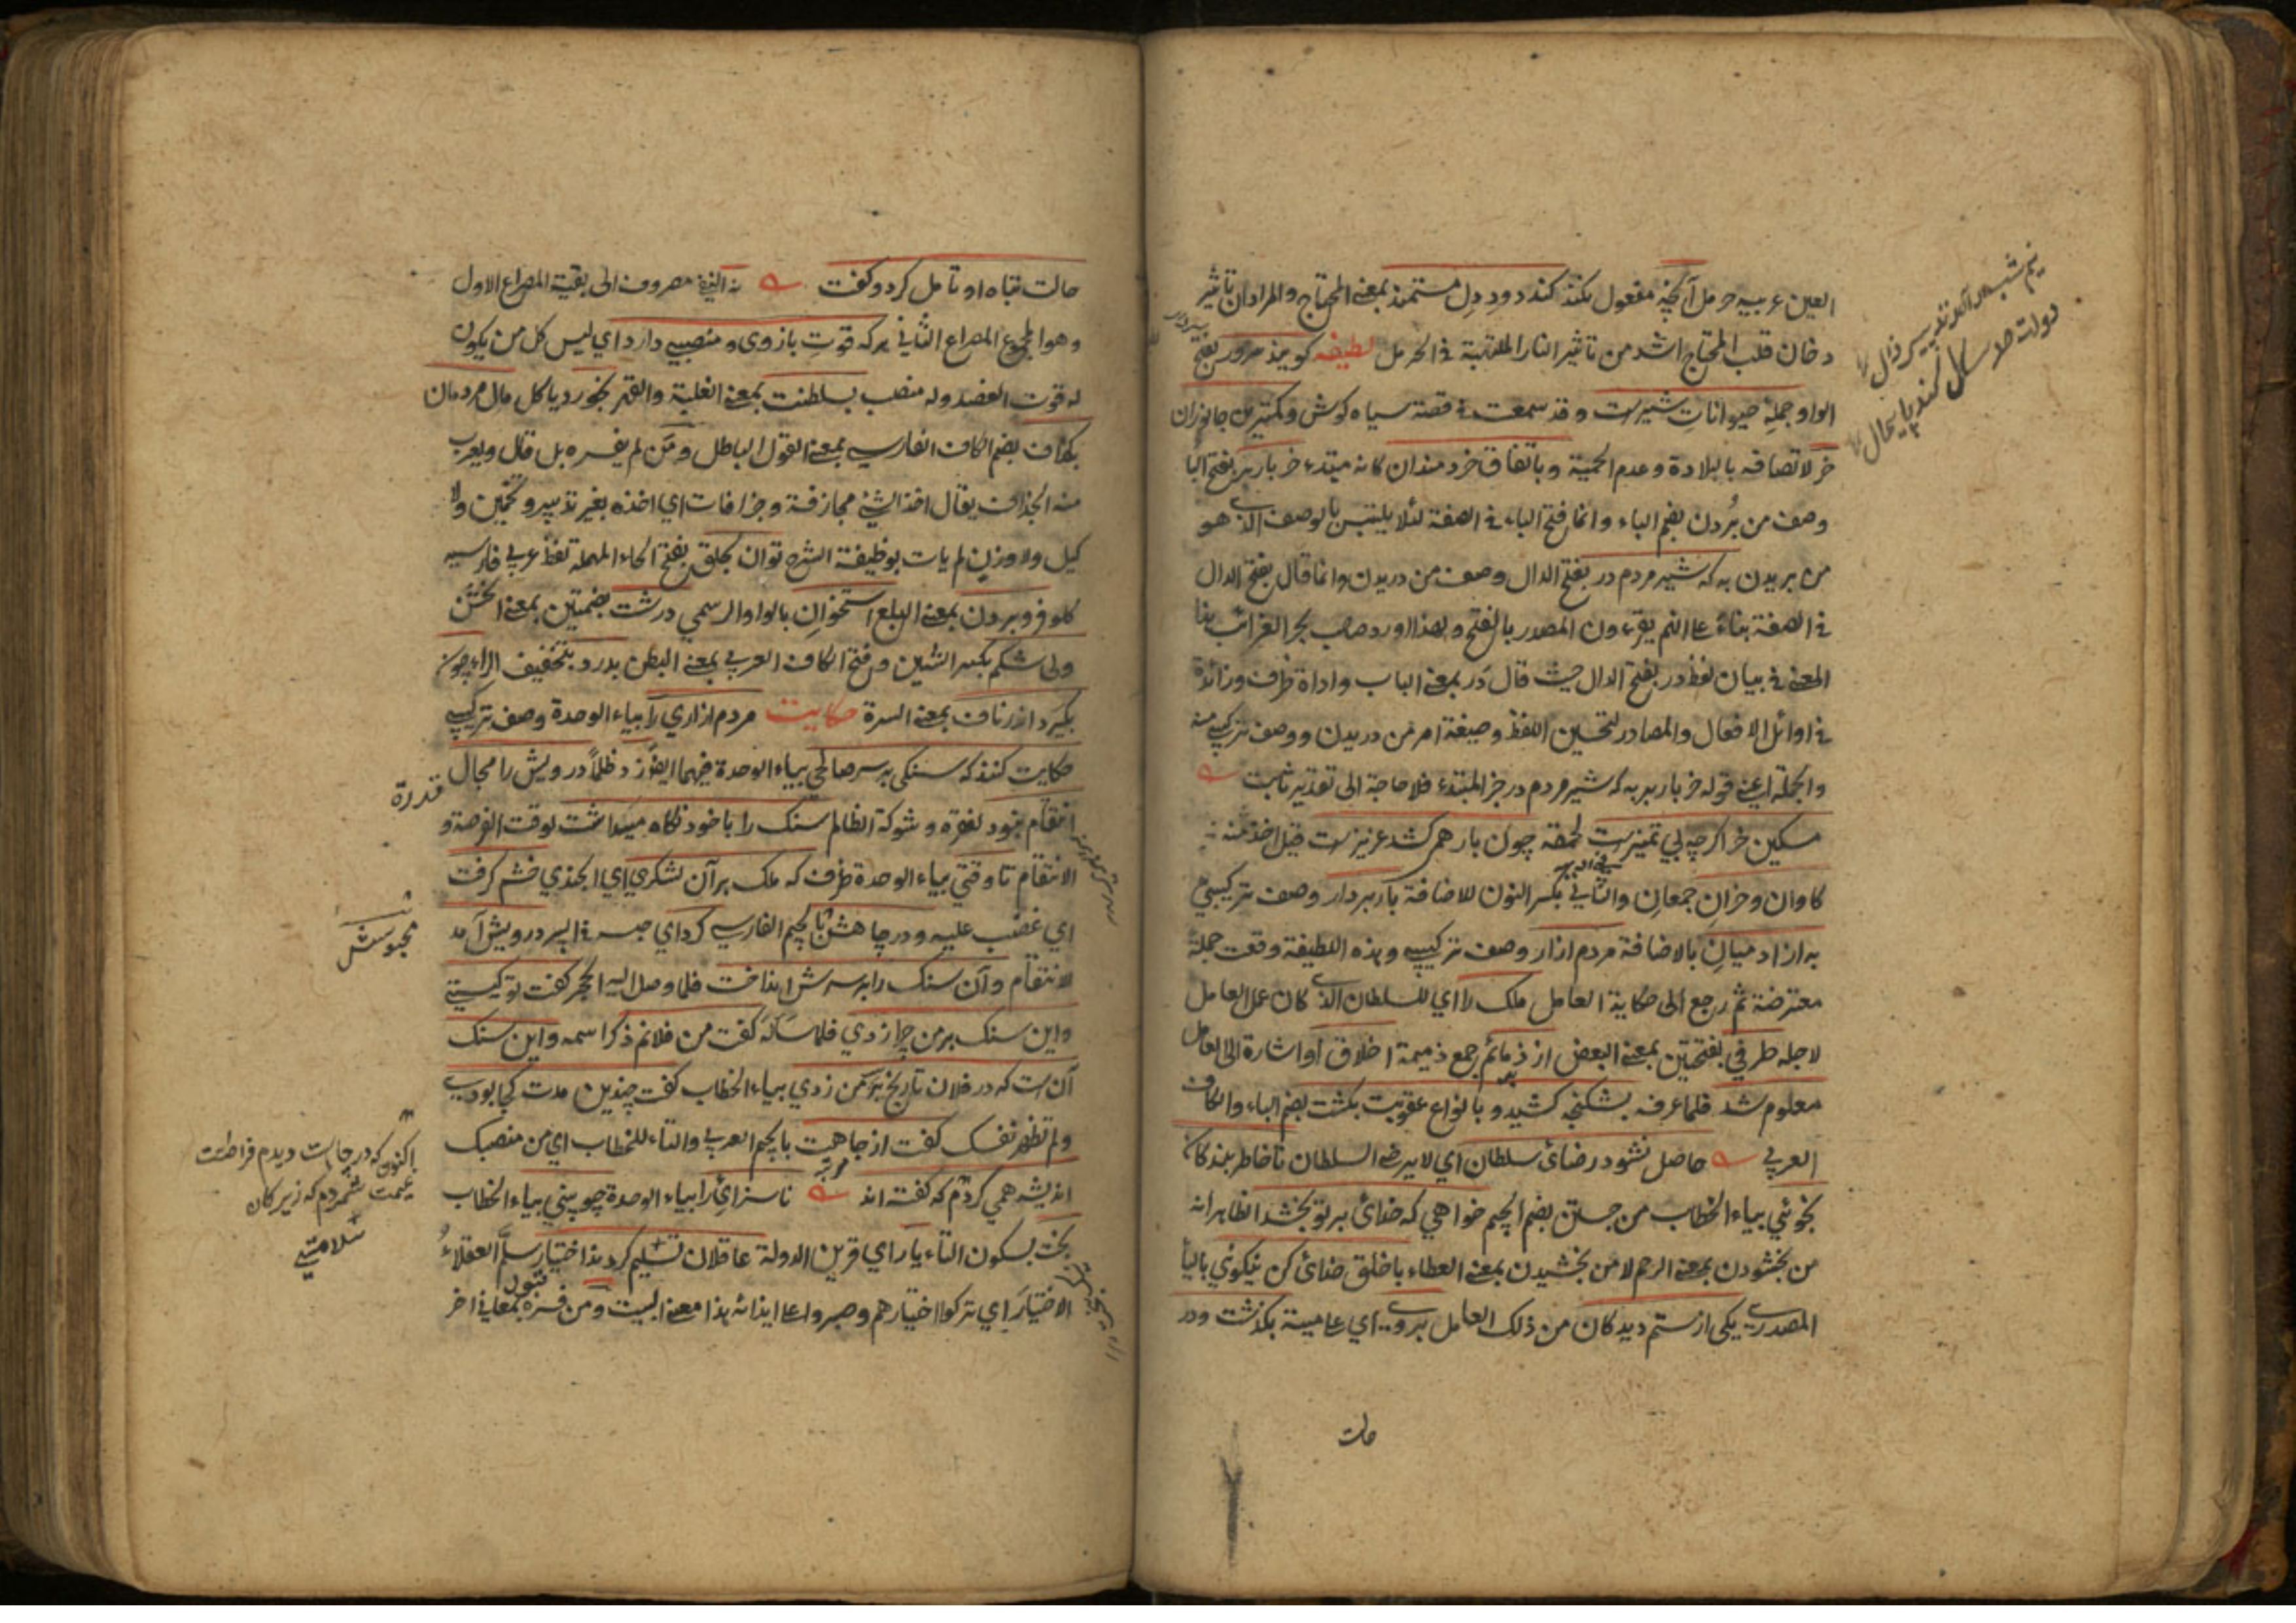 العين عربيه حرمل آنچه مفعول نكند كند دود دل مستمند بمعنى المحتاج والمراد ان تأثير
دخان قلب المحتاج اشد من تأثير النار الملتهبة فى الحرمل لطيفه كويند سرور بفتح
الواو جملهٔ حيوانات شيرست وقد سمعت فى قصة سياه كوش وكمترين جانوران
خر لاتصافه بالبلادة وعدم الحمية وباتفاق خردمندان كانه مبتدء خر باربر بفتح البا
وصف من بُردن بضم الباء وانما فتح الباء فى الصفة لئلا يلتبس بالوصف الذى هو
من بريدن به كه شير مردم در بفتح الدال وصف من دريدن وانما قال بفتح الدال
فى الصفة بناءً على انهم يقرءون المصدر بالفتح ولهذا اورد صاحب بحر الغرائب
المعنى فى بيان لفظ در بفتح الدال حيث قال دَر بمعنى الباب واداة ظرف وزائدة
فى اوائل الافعال والمصادر لتحسين اللفظ وصيغة امر من دريدن ووصف تركيبى منه
والجملة اعنى قوله خر باربر به كه شير مردم در خبر المبتدء فلا حاجة الى تقدير ثابت
مسكين خر اكرچه بى تميزست لحمقه چون بار همى كشد عزيزست قيل اخذ منه
كاوان وخران جمعان والثانى بكسر النون للاضافة باربردار وصف تركيبى
به از آدميان بالاضافة مردم ازار وصف تركيبى وهذه اللطيفة وقعت جملة
معترضة ثم رجع الى حكاية العامل ملك را اى للسلطان الذى كان عمل العامل
لاجله طرفى بفتحتين بمعنى البعض از ذمائم جمع ذميمة اخلاق او اشارة الى العامل
معلوم شد فلما عرفه بشكنجه كشيد و بانواع عقوبت بكشت بضم الباء والكاف
العربى حاصل نشود رضاى سلطان اى لا يرضى السلطان تا خاطر بندكان
نجوئى بياء الخطاب من جستن بضم الجيم خواهى كه خداى بر تو بخشد الظاهر انه
من بخشودن بمعنى الرحم لا من بخشيدن بمعنى العطاء با خلق خداى كن نيكوئى بالياء
المصدرى يكى از ستم ديدكان من ذلك العامل بروى اى على ميته بكذشت ودر
حالت
نيم شب
دولت صد سال كند پايمال
حالت تباه او تأمل كرد وكفت نه النفى مصروف الى بقية المصراع الاول
وهو المجموع المصراع الثانى هركه قوت بازوى ومنصبى دارد اى ليس كل من يكون
له قوت العضد وله منصب بسلطنت بمعنى الغلبة والقهر بخورد يأكل مال مردمان
بكزاف بضم الكاف الفارسى بمعنى القول الباطل ومَن لم يفسره بل قال ويعرب
منه الجذاف يقال اخذ الشئ مجازفة وجزافات اى اخذه بغير تدبير وتخمين ولا
كيل ولا وزن لم يأت بوظيفة الشرح توان بحلق بفتح الحاء المهملة لفظ عربى فارسيه
كلو فرو بردن بمعنى البلع استخوان بالواو الرسمى درشت بضمتين بمعنى الخشن
ولى شكم بكسر الشين وفتح الكاف العربى بمعنى البطن بدرد بتخفيف الراء چون
بكيرد اندر ناف بمعنى السرة حكايت مردم ازارى را بياء الوحدة وصف تركيبى
حكايت كنند كه سنكى بر سر صالحى بياء الوحدة فيهما ايضا زد ظلماً درويش را مجال
قدرة
انتقام نبود لفقره وشوكة الظالم سنك را با خود نكاه ميداشت لوقت الفرصة و
الانتقام تا وقتى بياء الوحدة ظرف كه ملك بر آن لشكرى اى الجندى خشم كرفت
اى غضب عليه ودر چاهش بالجيم الفارسى كرد اى حبسه فى البير درويش آمد
للانتقام وآن سنك را بر سرش انداخت فلما وصل اليه الحجر كفت تو كيستى
واين سنك بر من چرا زدى فلما سأله كفت من فلانم ذكر اسمه واين سنك
آن است كه در فلان تاريخ بر من زدى بياء الخطاب كفت چندين مدت كجا بودى
ولم تظهر نفسك كفت از جاهت بالجيم العربى والتاء للخطاب اى من منصبك
انديشه همى كردم كه كفته اند ناسزائى را بياء الوحدة چو بينى بياء الخطاب
بخت بسكون التاء يار اى قرين الدولة عاقلان تسليم كردند اختيار سلّم العقلاءُ
الاختيارَ اى تركوا اختيارهم وصبروا على ايذائه هذا معنى البيت ومن فسره بمعانى اخر
محبوسش
اكنون كه در چاهت ديدم فرصت
غنيمت شمردم كه زيركان